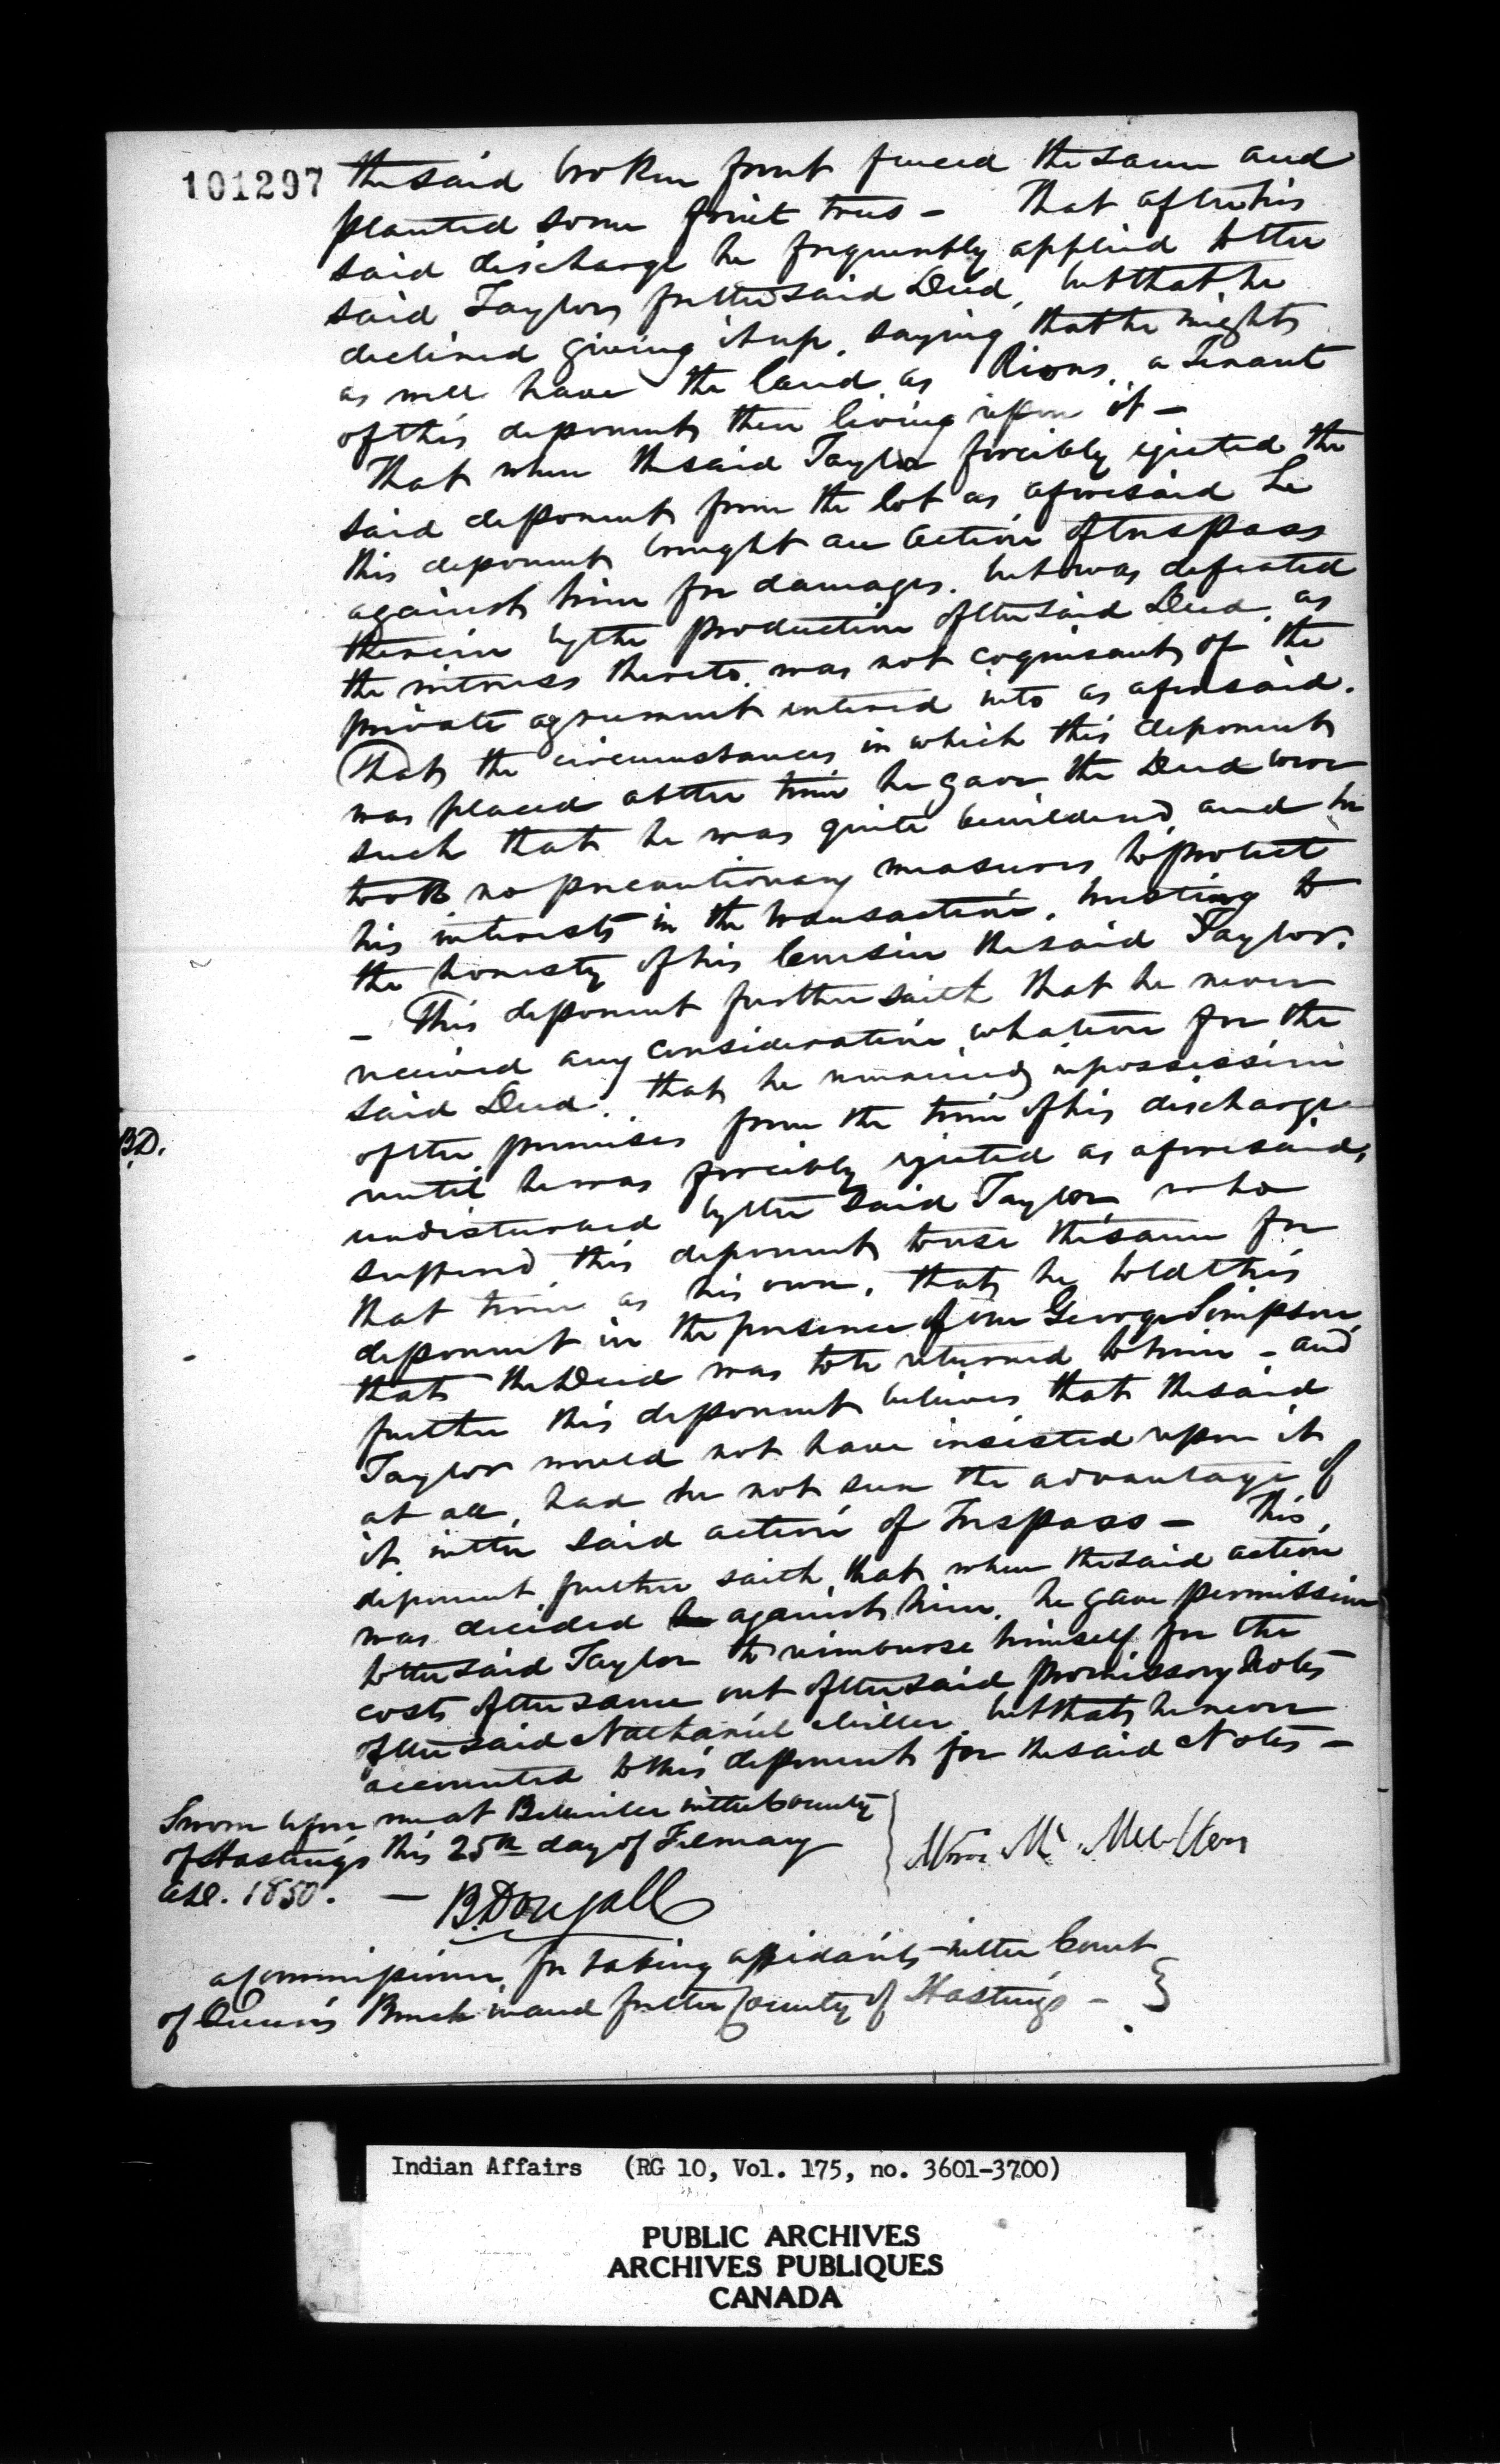 101297
the said broken front fenced the same and
planted some fruit trees – That after his
said discharge he frequently applied to the
said Taylor for the said Deed, but that he
declined giving it up, saying that he might
as well have the land as a tenant
of this deponent then living upon it –
That when the said Taylor forcibly ejected the
said deponent from the lot as aforesaid he
this deponent brought an action of trespass
against him for damages. but was defeated
therein by the production of the said Deed, as
the witness thereto was not cognisant of the
private agreement entered into as aforesaid.
That the circumstances in which this deponent
was placed at the time he gave the Deed were
such that he was quite bewildered, and he
took no precautionary measures to protect
his interests in the transaction, trusting to
the honesty of his Cousin the said Taylor.
– This deponent further saith that he never
received any consideration whatever for the
said Deed. that he remained in possession
of the premises from the time of his discharge
B.D.
until he was forcibly ejected as aforesaid,
undisturbed by the said Taylor who
suffered this deponent to use the same for
that time as his own, that he told this
deponent in the presence of one George Simpson,
that the Deed was to be returned to him – and
further this deponent believes that the said
Taylor would not have insisted upon it
at all, had he not seen the advantage of
it in the said action of Trespass – This
deponent further saith that when the said action
was decided against him, he gave permission
to the said Taylor to reimburse himself for the
costs of the same out of the said promissory Notes
of the said Nathaniel Miller, but that he never
accounted to this deponent for the said Notes –
Sworn before me at Belleville in the County
of Hastings this 25th day of February
A.D. 1850. –
Wm. Mc. Mullen
B. Dougall
a Commissioner for taking affidavits in the Court
of Queen's Bench in and for the County of Hastings –
Indian Affairs (RG 10, Vol. 175, no. 3601-3700)
PUBLIC ARCHIVES
ARCHIVES PUBLIQUES
CANADA